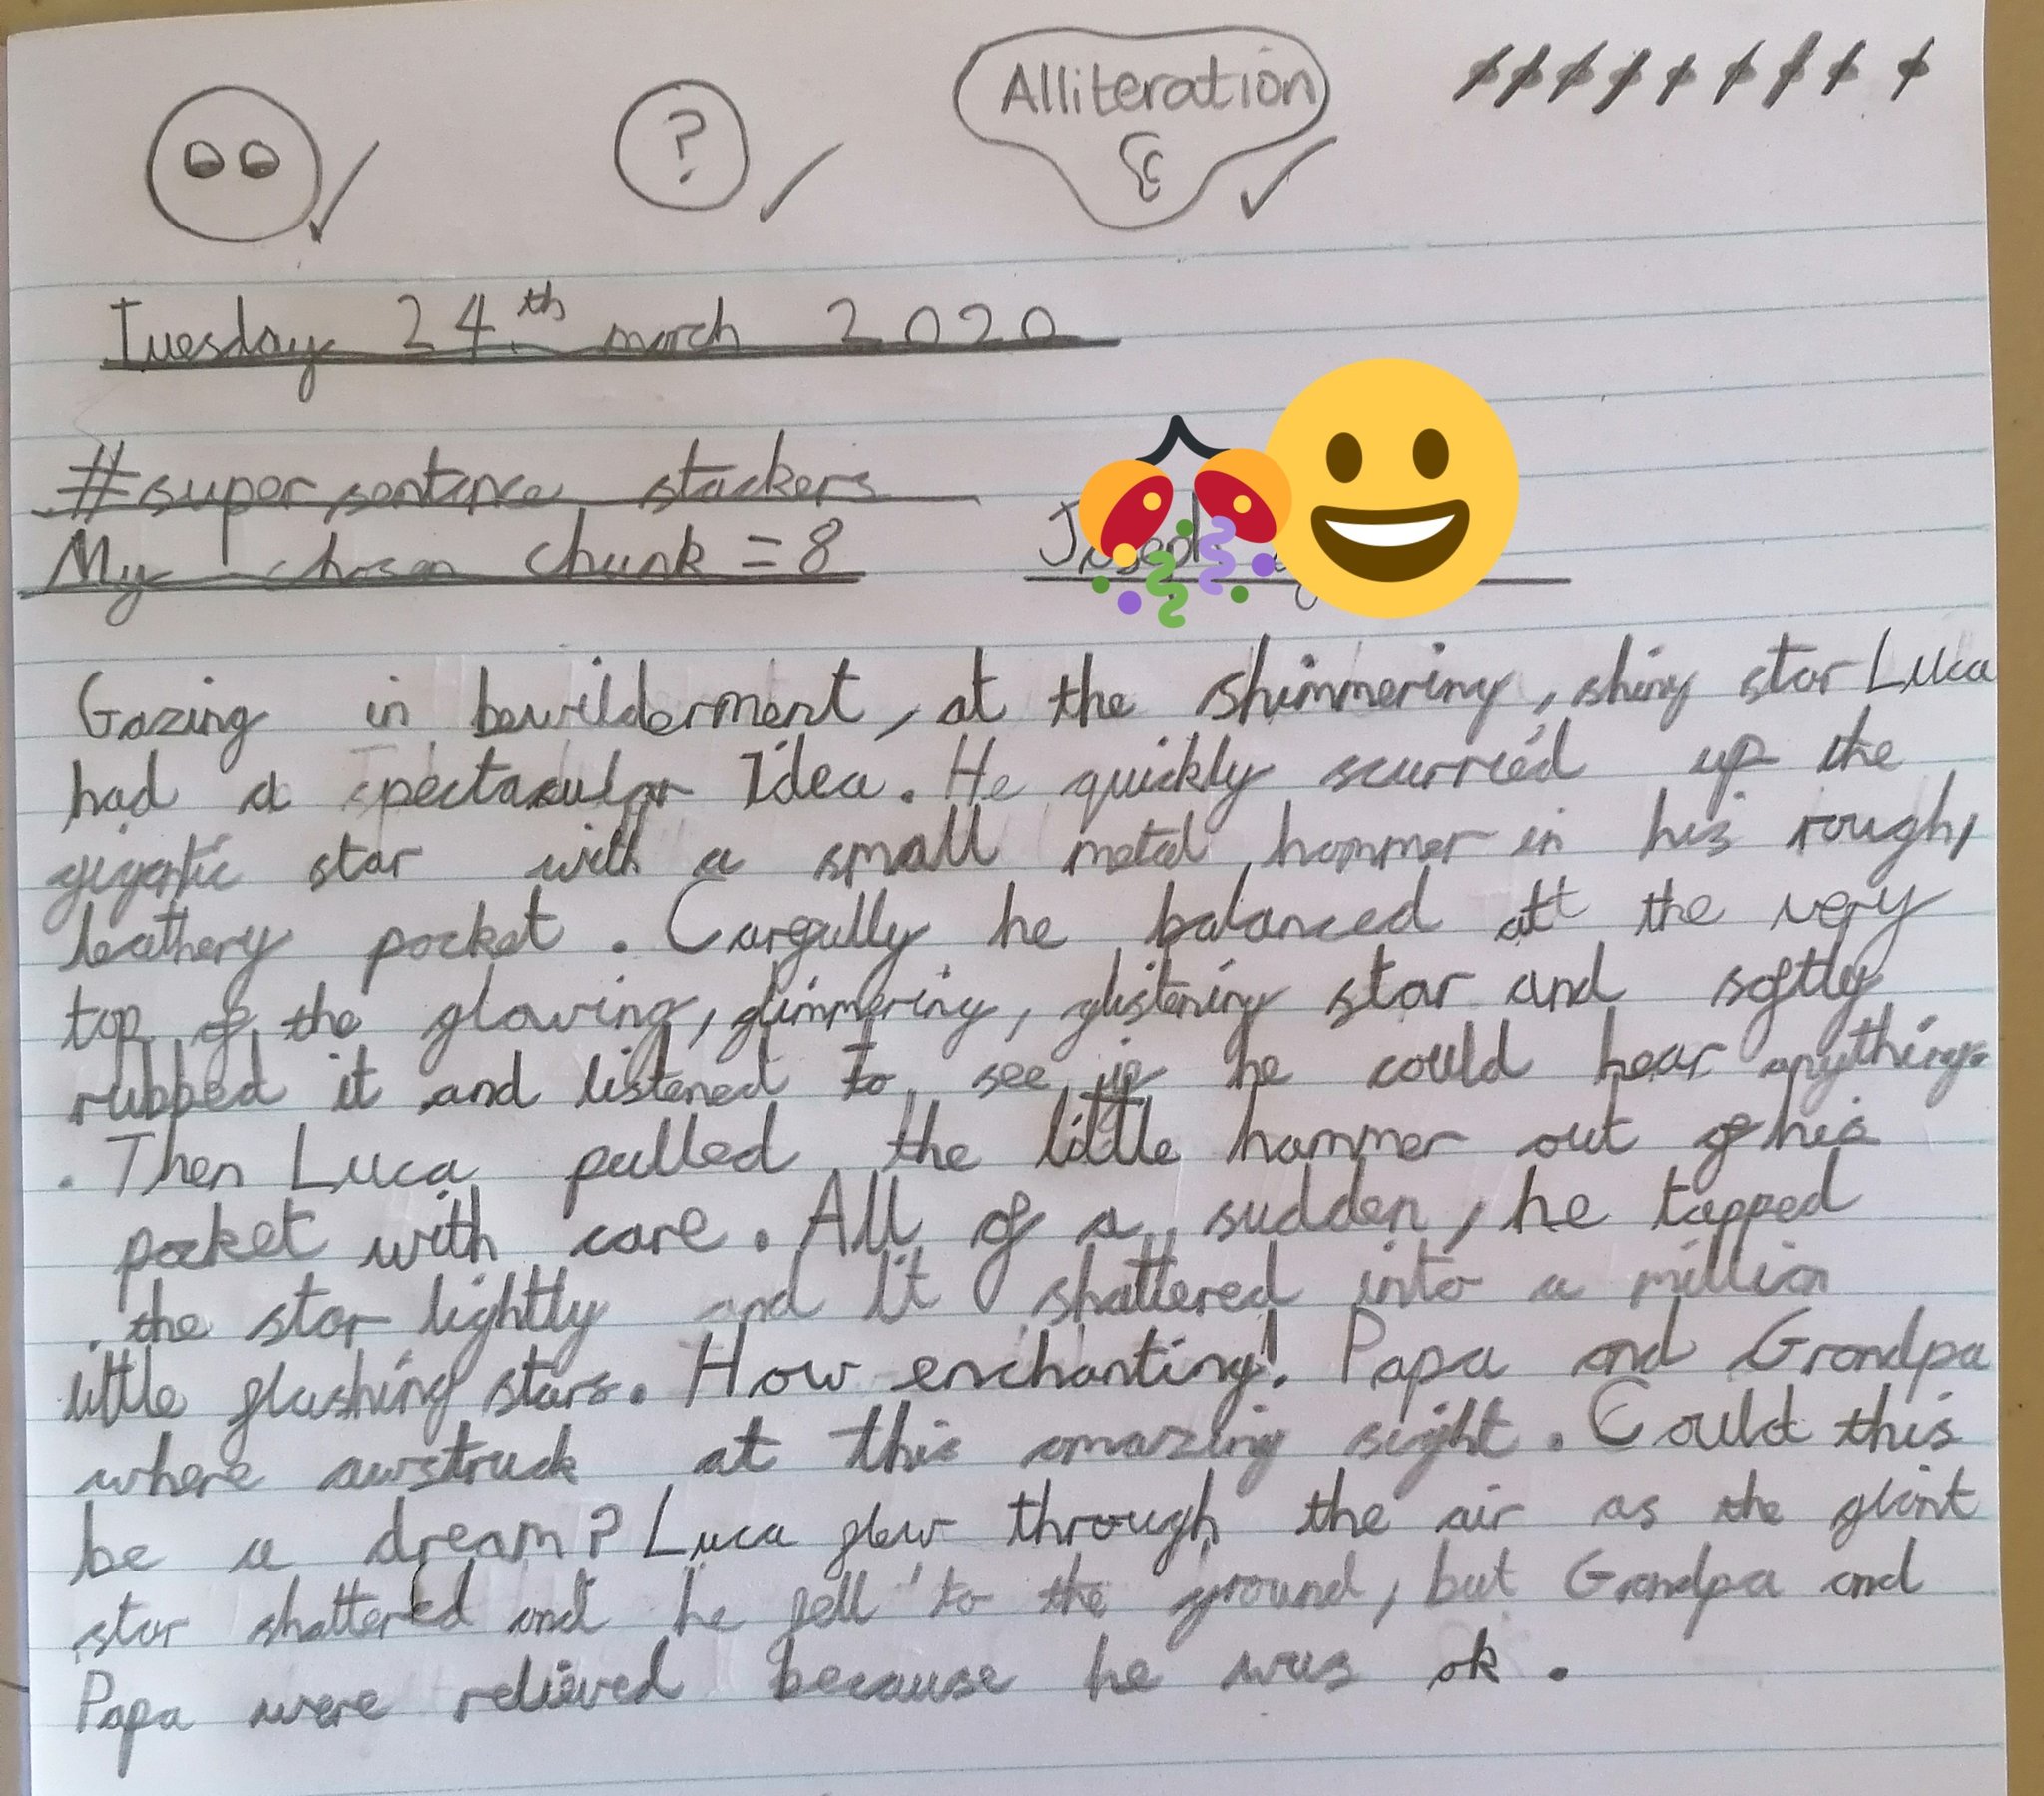 ?
Alliteration
Tuesday 24th march 2020
#super sentence stackers
My chosen chunk = 8
Gazing in bewilderment, at the shimmering, shiny star Luca
had a spectacular Idea. He quickly scurried up the
gigatic star with a small metal hammer in his rough,
leathery pocket. Carefully he balanced att the very
top of the glowing, glimmering, glistening star and softly
rubbed it and listened to see if he could hear anything
. Then Luca pulled the little hammer out of his
pocket with care. All of a sudden, he tapped
the star lightly and It shattered into a million
little flashing stars. How enchanting! Papa and Grandpa
where awstruck at this amazing sight. Could this
be a dream? Luca flew through the air as the giant
star shattered and he fell to the ground, but Grandpa and
Papa were relieved because he was ok.